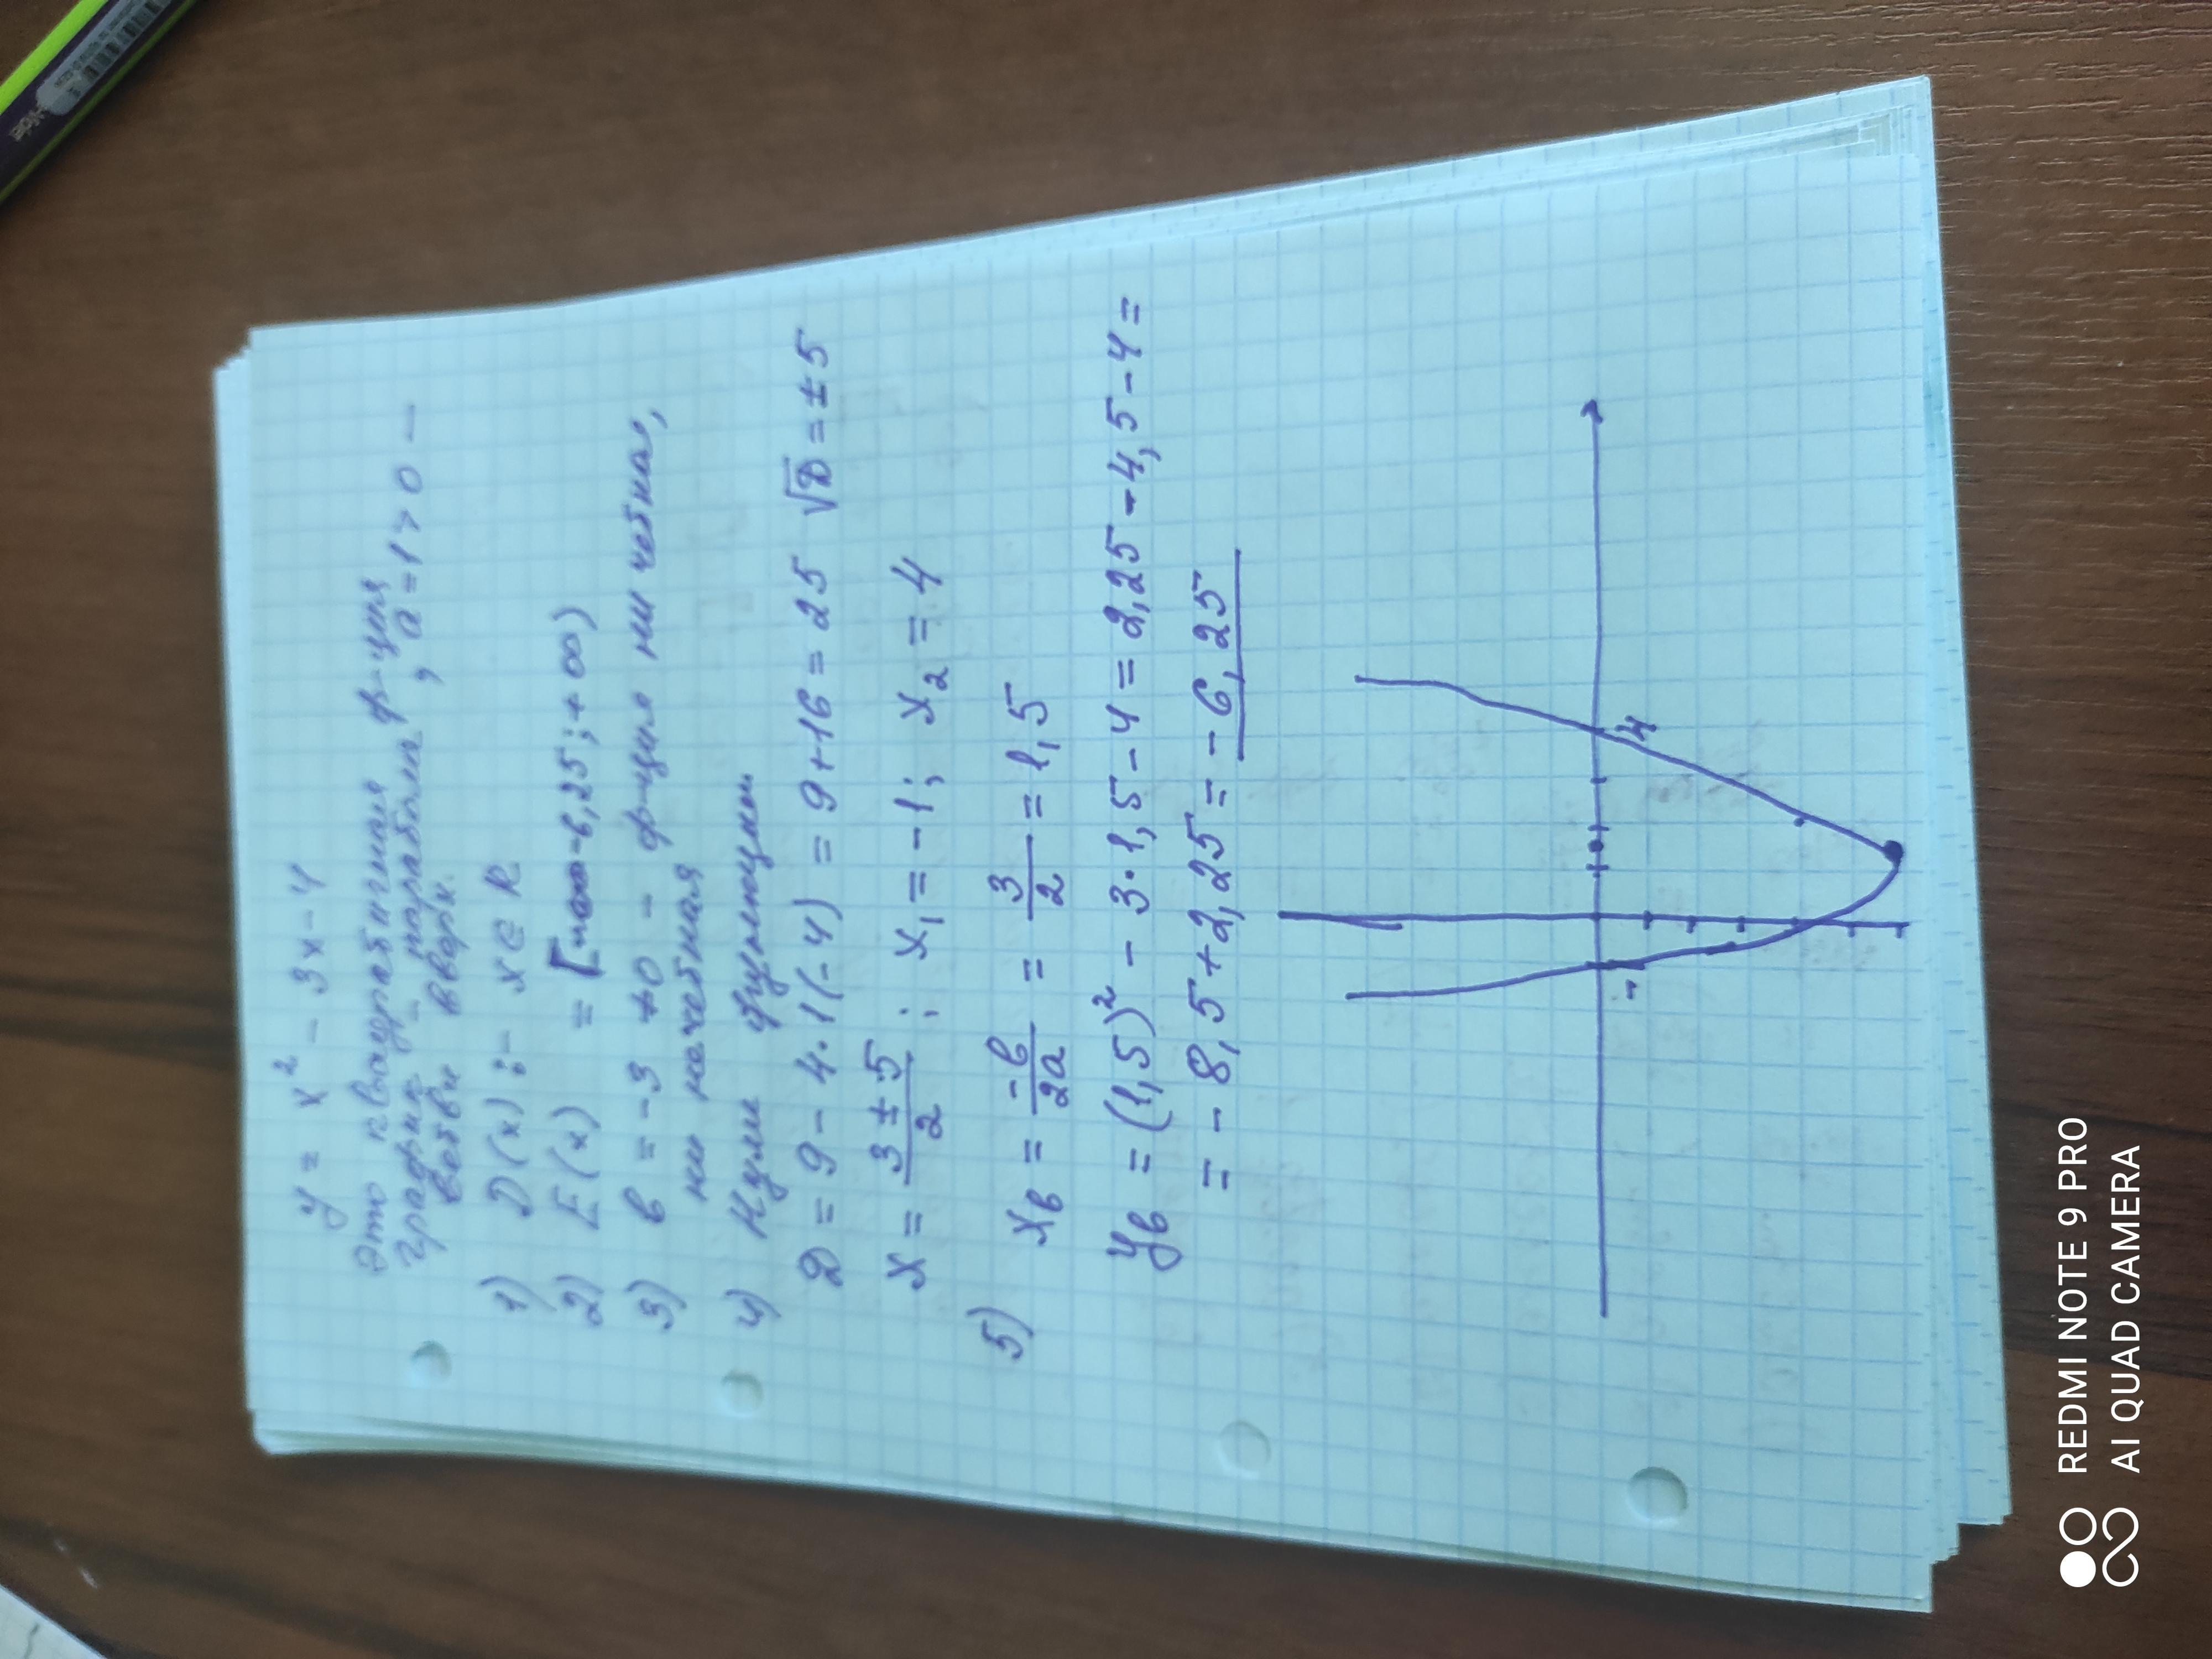 y = x² - 3x - 4
Это квадратичная ф-ция
график - парабола, a = 1 > 0 -
ветви вверх.
1) D(x) :- x ∈ R
2) E(x) = [-6,25; +∞)
3) в = -3 ≠ 0 - ф-ция ни четная,
ни нечетная
4) Нули функции
D = 9 - 4·1(-4) = 9+16 = 25 √D = ±5
x = (3 ± 5)/2 ; x₁ = -1; x₂ = 4
5) xв = -в/2a = 3/2 = 1,5
yв = (1,5)² - 3·1,5 - 4 = 2,25 - 4,5 - 4 =
= - 8,5 + 2,25 = - 6,25
-1
4
REDMI NOTE 9 PRO
AI QUAD CAMERA